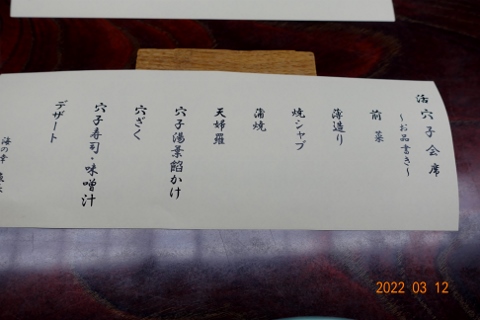 活 穴子会席
～お品書き～
前菜
薄造り
焼シャブ
蒲焼
天婦羅
穴子湯葉餡かけ
穴ざく
穴子寿司・味噌汁
デザート
海の幸
2022 03 12